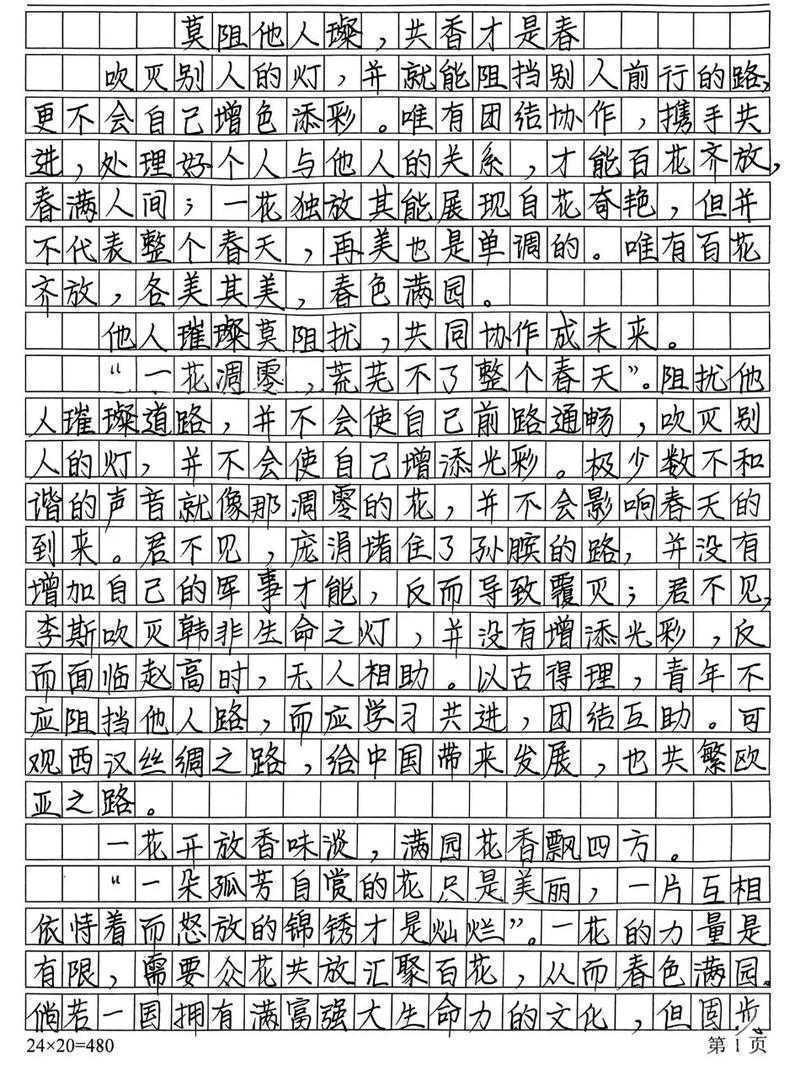 莫阻他人璨，共香才是春
吹灭别人的灯，并就能阻挡别人前行的路，
更不会自己增色添彩。唯有团结协作，携手共
进，处理好个人与他人的关系，才能百花齐放，
春满人间；一花独放其能展现自花奇艳，但并
不代表整个春天，再美也是单调的。唯有百花
齐放，各美其美，春色满园。
他人璀璨莫阻扰，共同协作成未来。
“一花凋零，荒芜不了整个春天”。阻扰他
人璀璨道路，并不会使自己前路通畅，吹灭别
人的灯，并不会使自己增添光彩。极少数不和
谐的声音就像那凋零的花，并不会影响春天的
到来。君不见，庞涓堵住了孙膑的路，并没有
增加自己的军事才能，反而导致覆灭；君不见，
李斯吹灭韩非生命之灯，并没有增添光彩，反
而面临赵高时，无人相助。以古得理，青年不
应阻挡他人路，而应学习共进，团结互助。可
观西汉丝绸之路，给中国带来发展，也共繁欧
亚之路。
一花开放香味淡，满园花香飘四方。
“一朵孤芳自赏的花只是美丽，一片互相
依恃着而怒放的锦锈才是灿烂”。一花的力量是
有限，需要众花共放汇聚百花，从而春色满园。
倘若一国拥有满富强大生命力的文化，但固步
24×20=480 第1页